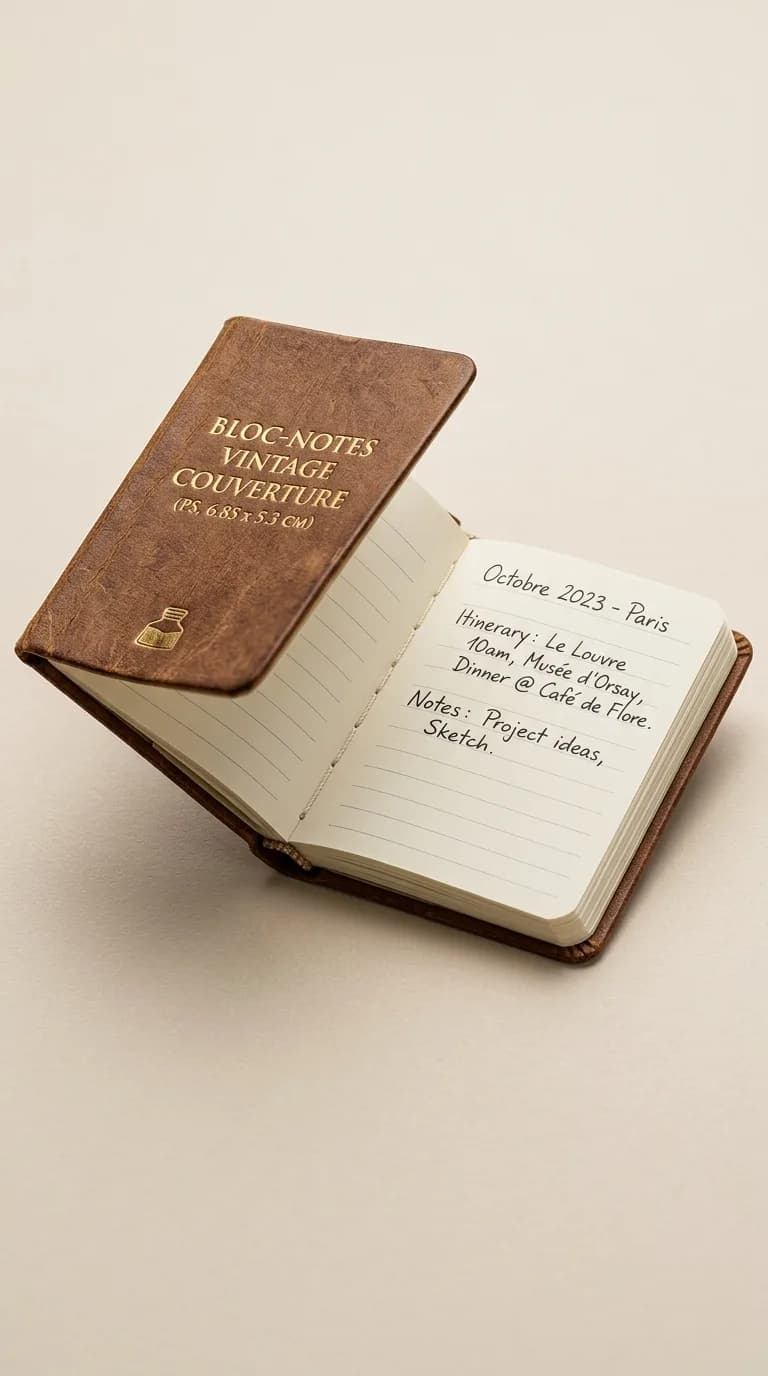 BLOC-NOTES
VINTAGE
COUVERTURE
(PS, 6.85 x 5.3 CM)
Octobre 2023 - Paris
Itinerary: Le Louvre
10am, Musée d'Orsay,
Dinner @ Café de Flore.
Notes: Project ideas,
Sketch.